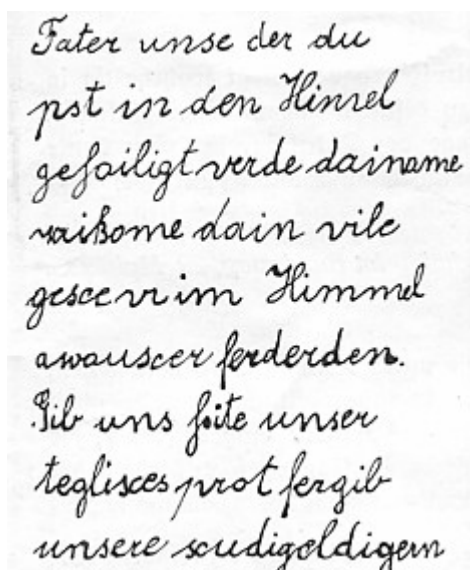 Fater unse der du
pst in den Himel
gefailigt verde dainame
raikome dain vile
gesce vi im Himmel
awauscer ferderden.
Gib uns foite unser
teglisces prot fergib
unsere scudigeldigern